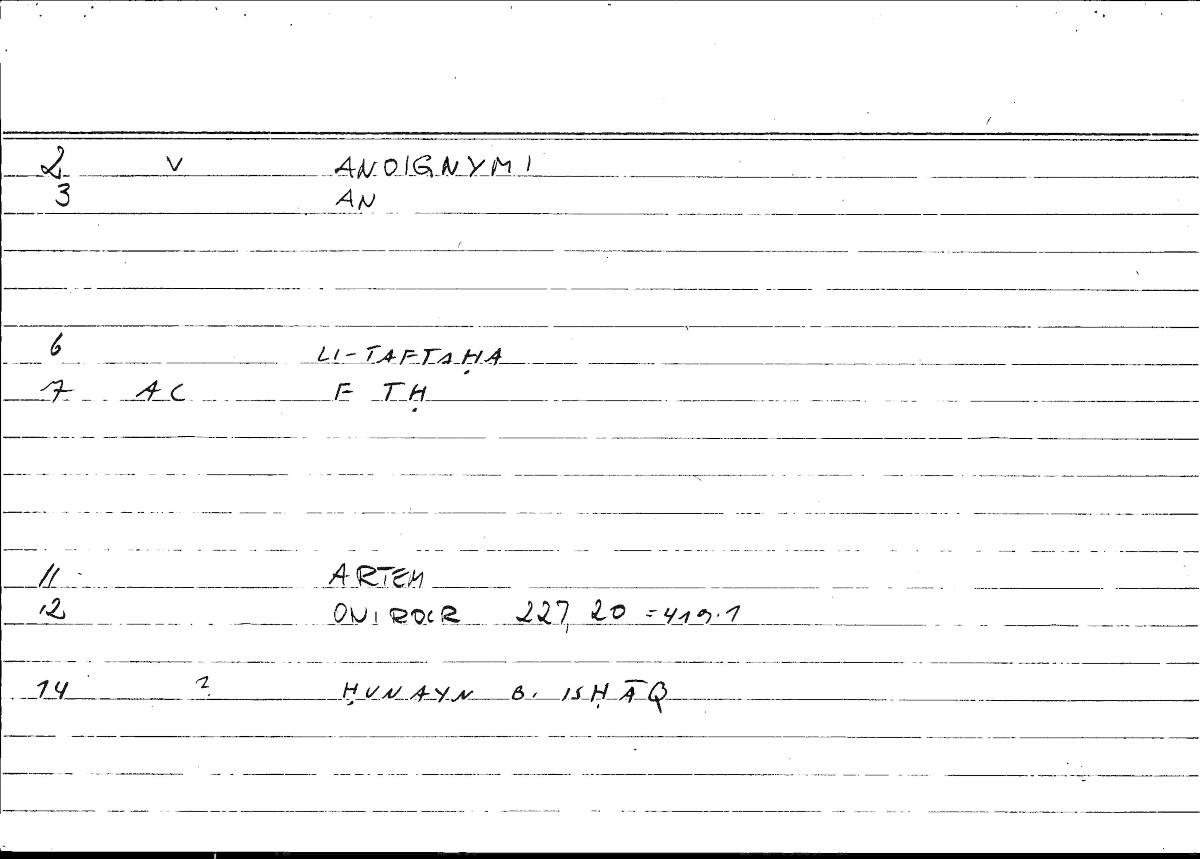 2 V ANOIGNYMI
3 AN
6 LI-TAFTAḤA
7 AC F TḤ
11 ARTEM
12 ONIROCR 227, 20 = 419.1
14 2 ḤUNAYN B. ISḤĀQ